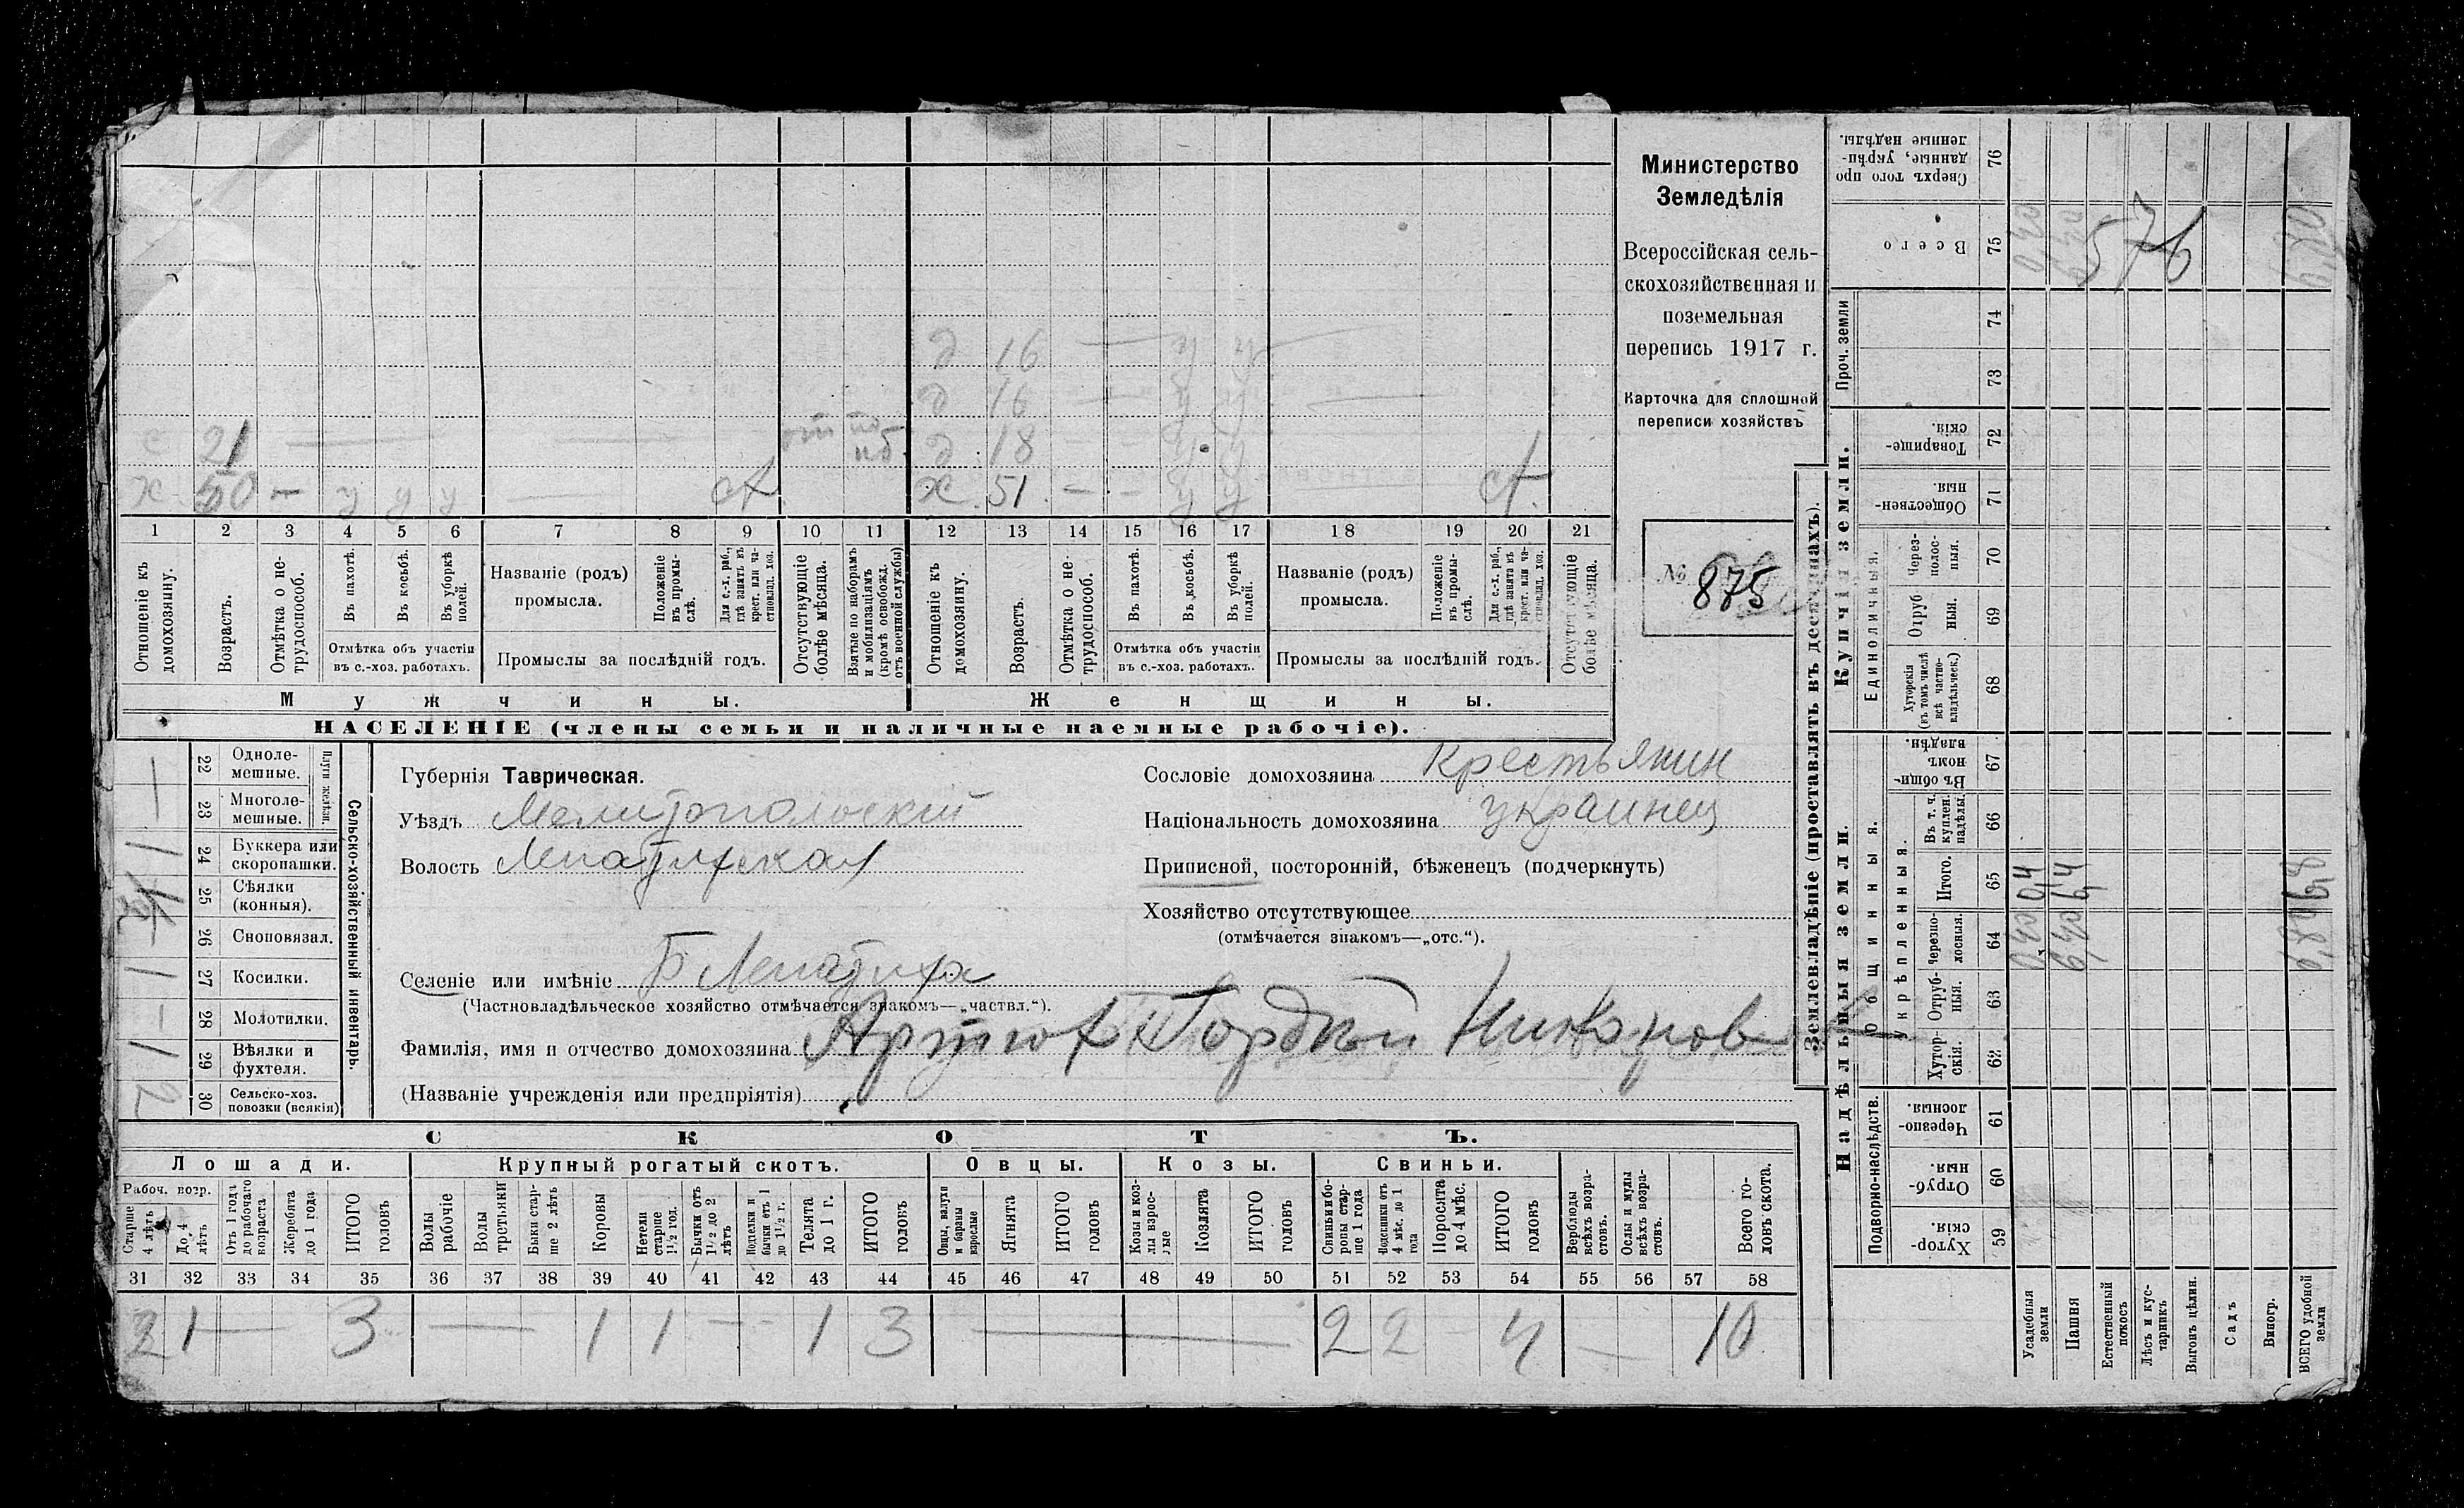 Министерство
Земледѣлія
Всероссійская сель-
скохозяйственная и
поземельная
перепись 1917 г.
Карточка для сплошной
переписи хозяйствъ
№ 875
д 16 — у у —
д 16 — — у у —
с 21 — — д 18 — — у у
х 50 — у у у — х 51 — — у у
1 2 3 4 5 6 7 8 9 10 11 12 13 14 15 16 17 18 19 20 21
Отношеніе къ домохозяину.
Возрастъ.
Отмѣтка о не-трудоспособ.
Въ пахотѣ.
Въ косьбѣ.
Въ уборкѣ полей.
Отмѣтка объ участіи въ с.-хоз. работахъ.
Названіе (родъ) промысла.
Положеніе въ промы-слѣ.
Для с.-х. раб., гдѣ занятъ въ крест. или ча-стновлад. хоз.
Промыслы за послѣдній годъ.
Отсутствующіе болѣе мѣсяца.
Взятые по наборамъ и мобилизаціямъ (кромѣ освобожд. отъ военной службы)
Отношеніе къ домохозяину.
Возрастъ.
Отмѣтка о не-трудоспособ.
Въ пахотѣ.
Въ косьбѣ.
Въ уборкѣ полей.
Отмѣтка объ участіи въ с.-хоз. работахъ.
Названіе (родъ) промысла.
Положеніе въ промы-слѣ.
Для с.-х. раб., гдѣ занята въ крест. или ча-стновлад. хоз.
Промыслы за послѣдній годъ.
Отсутствующіе болѣе мѣсяца.
Мужчины. Женщины.
НАСЕЛЕНІЕ (члены семьи и наличные наемные рабочіе).
Сельско-хозяйственный инвентарь.
Плуги желѣзн.
22 Одноле-мешные.
— 23 Многоле-мешные.
1 24 Буккера или скоропашки.
25 Сѣялки (конныя).
— 26 Сноповязал.
1 27 Косилки.
— 28 Молотилки.
1 29 Вѣялки и фухтеля.
2 30 Сельско-хоз. повозки (всякія)
Губернія Таврическая.
Уѣздъ Мелитопольскій
Волость Лепатихская
Селеніе или имѣніе Б Лепатиха
(Частновладѣльческое хозяйство отмѣчается знакомъ—„частвл.“).
Фамилія, имя и отчество домохозяина Артюх Гордѣй Никонов
(Названіе учрежденія или предпріятія)
Сословіе домохозяина крестьянин
Національность домохозяина украинец
Приписной, посторонній, бѣженецъ (подчеркнуть)
Хозяйство отсутствующее
(отмѣчается знакомъ—„отс.“).
СКОТЪ.
Лошади. Крупный рогатый скотъ. Овцы. Козы. Свиньи.
Рабоч. возр.
Старше 4 лѣтъ
До 4 лѣтъ
Отъ 1 года до рабочаго возраста
Жеребята до 1 года
ИТОГО головъ
Волы рабочіе
Волы третьяки
Быки стар-ше 2 лѣтъ
Коровы
Нетели старше 1½ год.
Бычки отъ 1½ до 2 лѣтъ
Подтелки и бычки отъ 1 до 1½ г.
Телята до 1 г.
ИТОГО головъ
Овцы, валухи и бараны взрослые
Ягнята
ИТОГО головъ
Козы и коз-лы взрос-лые
Козлята
ИТОГО головъ
Свиньи и бо-ровы стар-ше 1 года
Подсвинки отъ 4 мѣс. до 1 года
Поросята до 4 мѣс.
ИТОГО головъ
Верблюды всѣхъ возра-стовъ.
Ослы и мулы всѣхъ возра-стовъ.
Всего го-ловъ скота.
31 32 33 34 35 36 37 38 39 40 41 42 43 44 45 46 47 48 49 50 51 52 53 54 55 56 57 58
2 1 — 3 — 1 1 — - 1 3 — 2 2 4 — 10
Землевладѣніе (проставлять въ десятинахъ).
Купчія земли.
Надѣльныя земли.
Проч. земли
Единоличныя.
Общинныя.
Укрѣпленныя.
Подворно-наслѣдств.
Сверхъ того про данные, укрѣп-ленные надѣлы. 76
Всего 75
74
73
Товарище-скія. 72
Обществен-ныя. 71
Через-полос-ныя. 70
Отруб ныя. 69
Хуторскія (въ томъ числѣ всѣ частно-владѣльческ.) 68
Въ общи-номъ владѣн. 67
Въ т. ч. куплен. надѣлы. 66
Итого. 65
Черезпо-лосныя. 64
Отруб-ныя. 63
Хутор-скія. 62
Черезпо-лосныя. 61
Отруб-ныя. 60
Хутор-скія. 59
576
0,4
6,4
6,8
Усадебныя земли
Пашня
Естественный покосъ
Лѣсъ и кус-тарникъ
Выгонъ цѣлин.
Садъ
Виногр.
ВСЕГО удобной земли